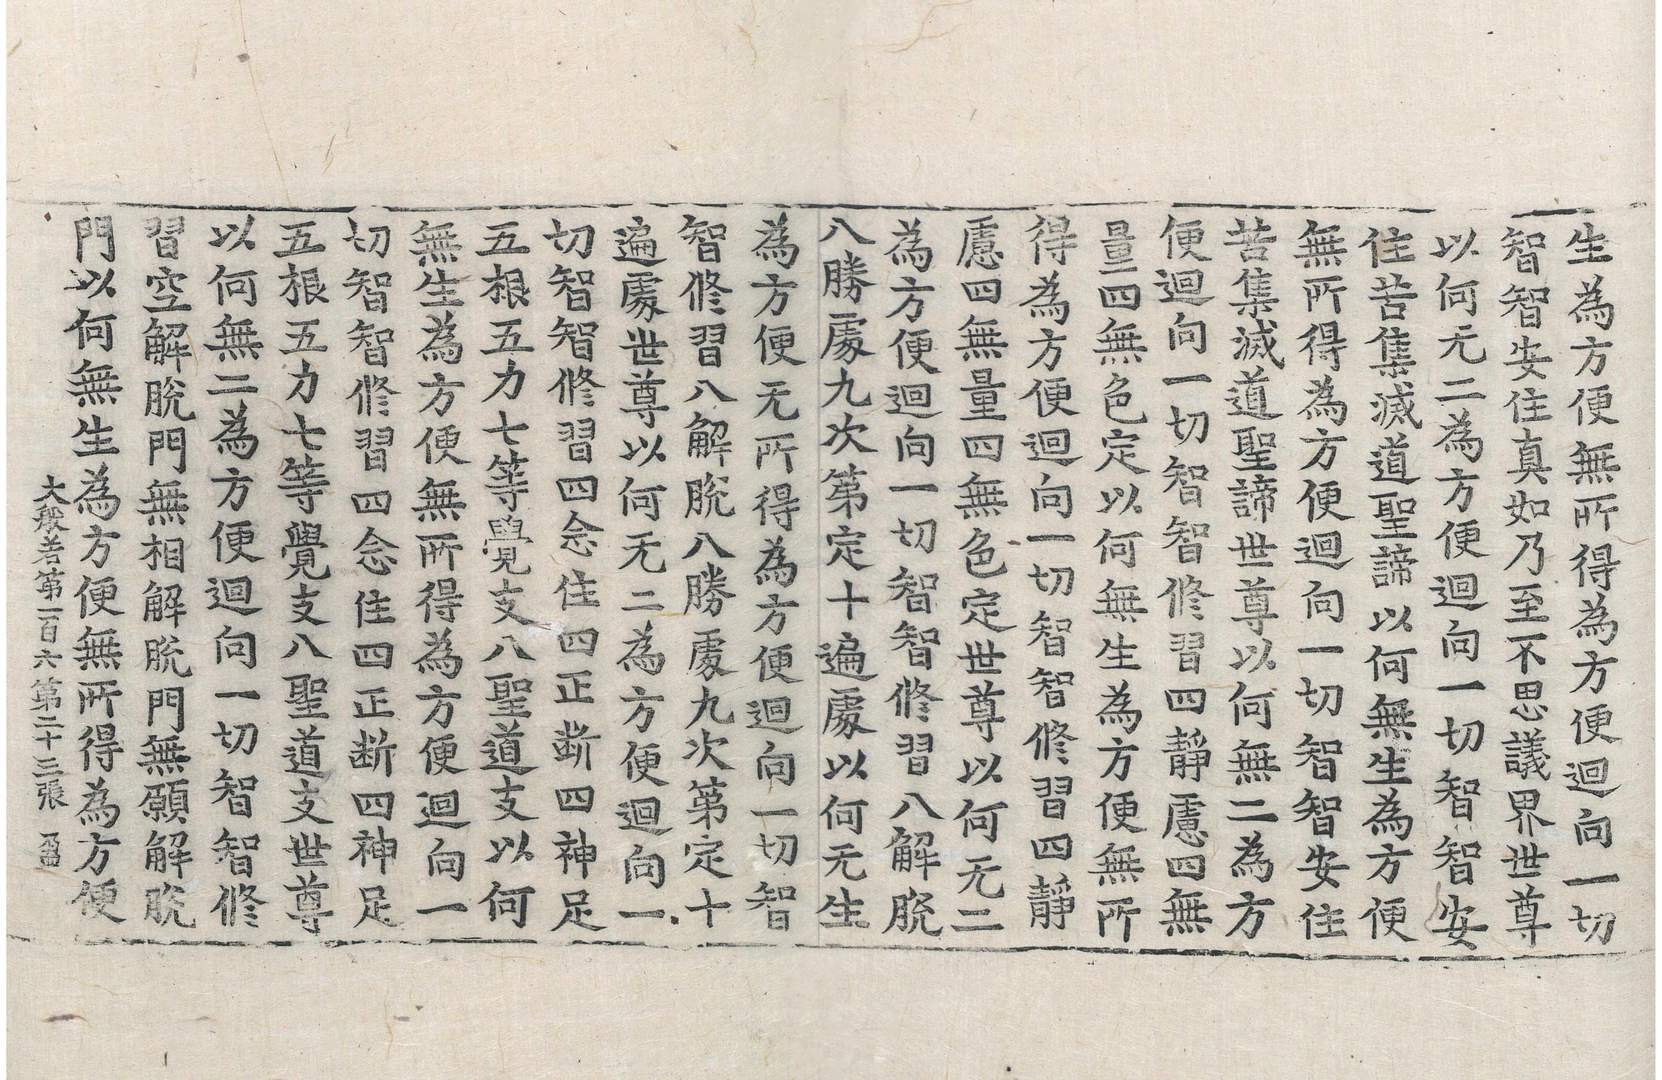 生為方便無所得為方便迴向一切
智智安住真如乃至不思議界世尊
以何无二為方便迴向一切智智安
住苦集滅道聖諦以何無生為方便
無所得為方便迴向一切智智安住
苦集滅道聖諦世尊以何無二為方
便迴向一切智智修習四靜慮四無
量四無色定以何無生為方便無所
得為方便迴向一切智智修習四靜
慮四無量四無色定世尊以何无二
為方便迴向一切智智修習八解脫
八勝處九次第定十遍處以何无生
為方便无所得為方便迴向一切智
智修習八解脫八勝處九次第定十
遍處世尊以何无二為方便迴向一
切智智修習四念住四正斷四神足
五根五力七等覺支八聖道支以何
無生為方便無所得為方便迴向一
切智智修習四念住四正断四神足
五根五力七等覺支八聖道支世尊
以何無二為方便迴向一切智智修
習空解脫門無相解脫門無願解脫
門以何無生為方便無所得為方便
大般若第一百六 第二十三張